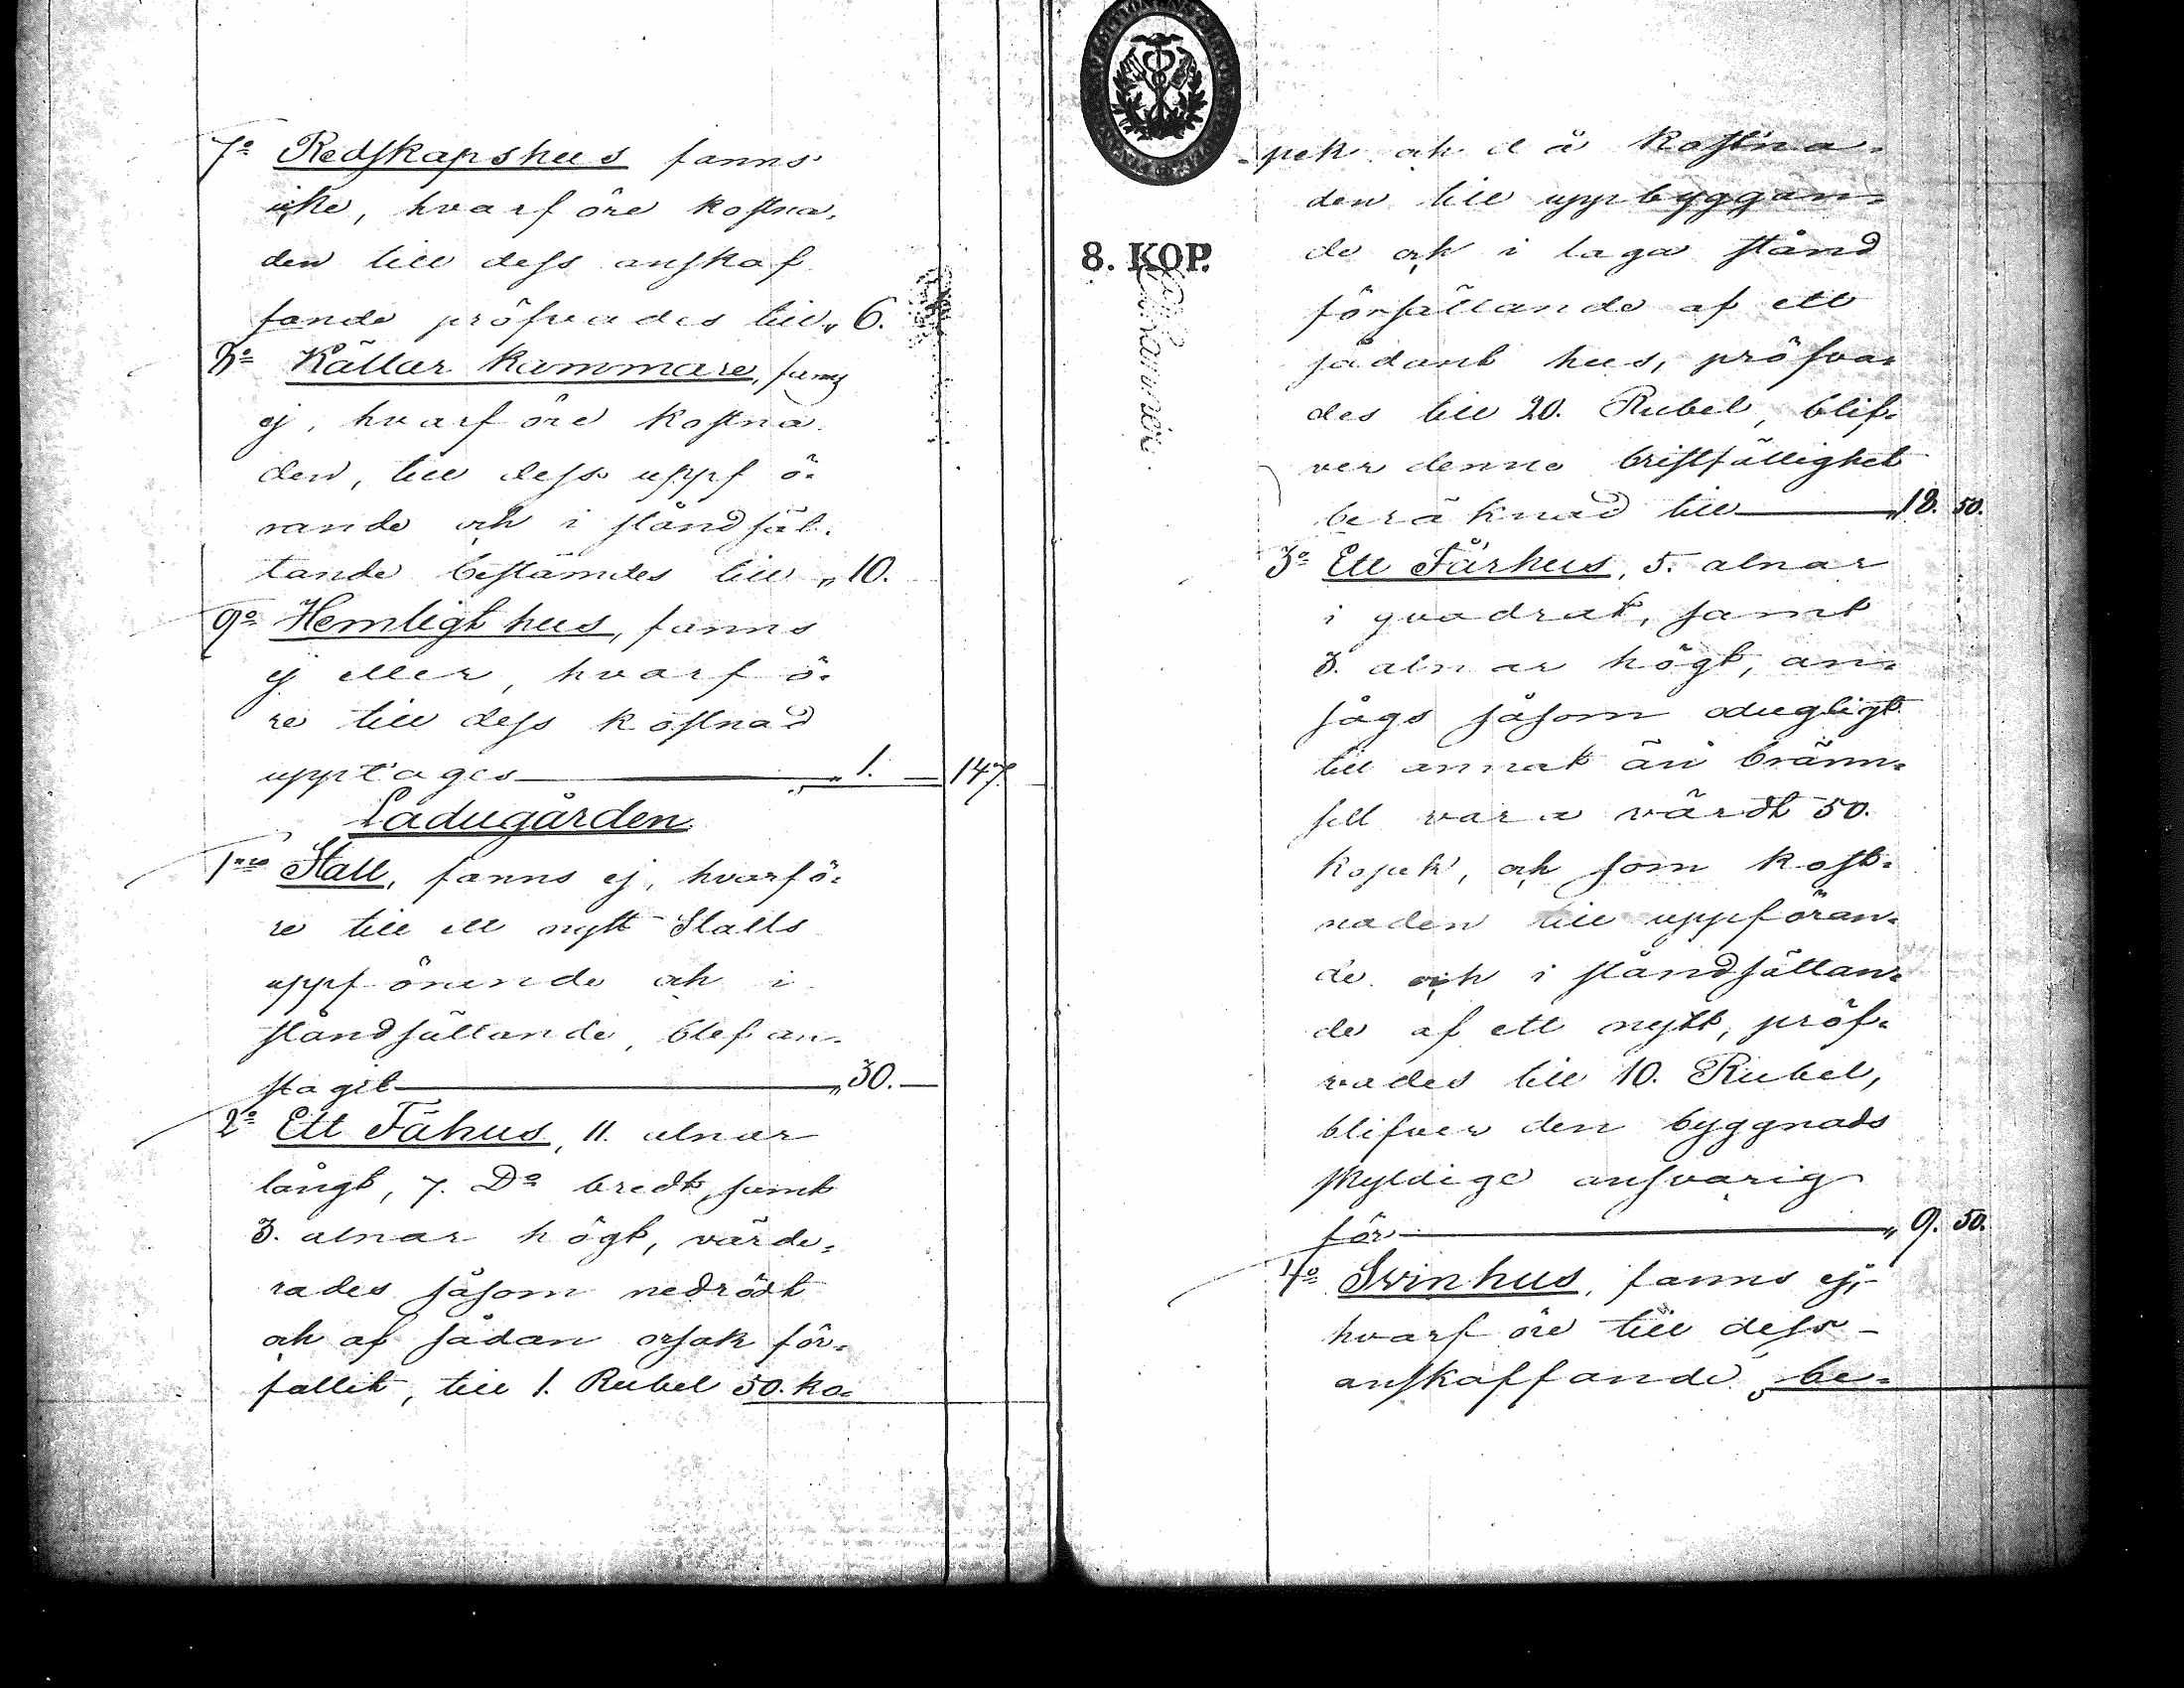 7o Redskapshus fanns
icke, hvarföre kostna-
den till dess anskaf
fande pröfvades till „ 6.
8o Källar kammare, fanns
ej, hvarföre kostna
den, till dess uppfö-
rande och i ståndsät-
tande bestämdes till „ 10.
9o Hemligt hus, fanns
ej eller, hvarfö-
re till dess kostnad
upptages „ 1. 147.
Ladugården
1mo Stall, fanns ej, hvarfö-
re till ett nytt Stalls
uppförande och i
ståndsättande, blef an-
slagit „ 30.
2o Ett Fähus, 11. alnar
långt, 7. Do bredt, samt
3. alnar högt, värde-
rades såsom nedrödt
och af sådan orsak för-
fallit, till 1. Rubel 50. ko-
8. KOP.
pek och då kostna-
den till uppbyggan-
de och i laga stånd
försättande af ett
sådant hus, pröfva-
des till 20. Rubel, blif-
ver denna bristfällighet
beräknad till „ 18. 50.
3o Ett Fårhus, 5. alnar
i quadrat, samt
3. alnar högt, an-
sågs såsom odugligt
till annat än bränn-
sell vara värdt 50.
Kopek, och som kost-
naden till uppföran-
de och i ståndsättan-
de af ett nytt, pröf-
vades till 10. Rubel,
blifver den byggnads
skyldige ansvarig
för „ 9. 50.
4o Svinhus, fanns ej,
hvarföre till dess
anskaffande, be-